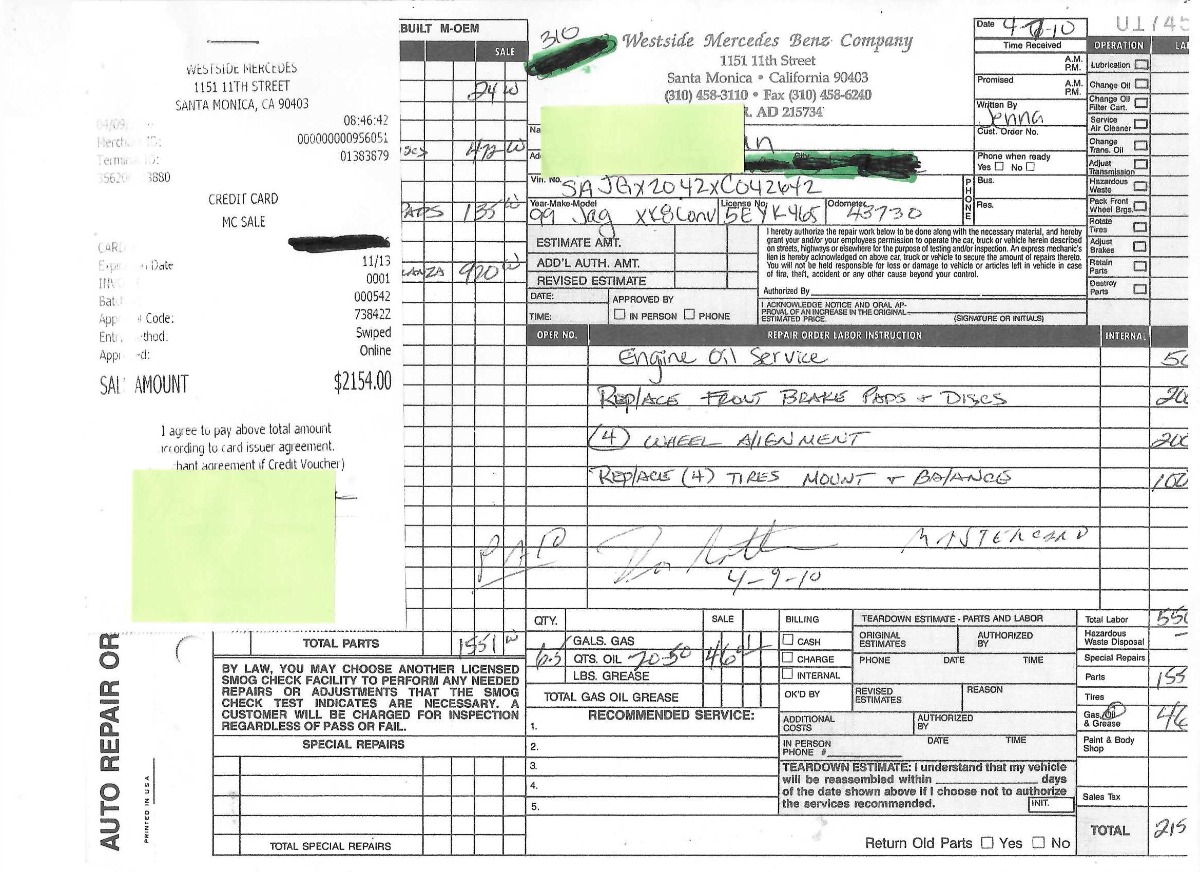 WESTSIDE MERCEDES
1151 11TH STREET
SANTA MONICA, CA 90403
04/09/ 08:46:42
Merch ID: 000000000956051
Termin ID: 01383879
35620 3880
CREDIT CARD
MC SALE
CARD
Exp Date 11/13
INVO 0001
Batc 000542
App Code: 738422
Ent thod: Swiped
Appr d: Online
SAL AMOUNT $2154.00
I agree to pay above total amount
ccording to card issuer agreement.
hant agreement if Credit Voucher)
BUILT M-OEM
SALE
24
472
PADS 135
920
TOTAL PARTS 1551
BY LAW, YOU MAY CHOOSE ANOTHER LICENSED
SMOG CHECK FACILITY TO PERFORM ANY NEEDED
REPAIRS OR ADJUSTMENTS THAT THE SMOG
CHECK TEST INDICATES ARE NECESSARY. A
CUSTOMER WILL BE CHARGED FOR INSPECTION
REGARDLESS OF PASS OR FAIL.
SPECIAL REPAIRS
TOTAL SPECIAL REPAIRS
AUTO REPAIR OR
PRINTED IN USA
310
Westside Mercedes Benz Company
1151 11th Street
Santa Monica • California 90403
(310) 458-3110 • Fax (310) 458-6240
R. AD 215734
Na
Add City
Vin. No. SAJGX2042XC042642
Year-Make-Model License No. Odometer
99 Jag XK8 Conv 5EYK465 43730
ESTIMATE AMT.
ADD'L AUTH. AMT.
REVISED ESTIMATE
DATE: APPROVED BY
TIME: IN PERSON PHONE
I hereby authorize the repair work below to be done along with the necessary material, and hereby
grant your and/or your employees permission to operate the car, truck or vehicle herein described
on streets, highways or elsewhere for the purpose of testing and/or inspection. An express mechanic's
lien is hereby acknowledged on above car, truck or vehicle to secure the amount of repairs thereto.
You will not be held responsible for loss or damage to vehicle or articles left in vehicle in case
of fire, theft, accident or any other cause beyond your control.
Authorized By
I ACKNOWLEDGE NOTICE AND ORAL AP-
PROVAL OF AN INCREASE IN THE ORIGINAL
ESTIMATED PRICE. (SIGNATURE OR INITIALS)
Date 4-7-10
Time Received
A.M.
P.M.
Promised A.M.
P.M.
Written By
Jenna
Cust. Order No.
Phone when ready
Yes No
PHONE
Bus.
Res.
OPERATION LA
Lubrication
Change Oil
Change Oil
Filter Cart.
Service
Air Cleaner
Change
Trans. Oil
Adjust
Transmission
Hazardous
Waste
Pack Front
Wheel Brgs.
Rotate
Tires
Adjust
Brakes
Retain
Parts
Destroy
Parts
OPER NO. REPAIR ORDER LABOR INSTRUCTION INTERNAL
Engine Oil Service 50
Replace Front Brake Pads + Discs 200
(4) Wheel Alignment 200
Replace (4) Tires Mount + Balance 100
PAID MASTERCARD
4-9-10
QTY. SALE
GALS. GAS
6.5 QTS. OIL 20-50 46
LBS. GREASE
TOTAL GAS OIL GREASE
RECOMMENDED SERVICE:
1.
2.
3.
4.
5.
BILLING
CASH
CHARGE
INTERNAL
OK'D BY
TEARDOWN ESTIMATE - PARTS AND LABOR
ORIGINAL ESTIMATES AUTHORIZED BY
PHONE DATE TIME
REVISED ESTIMATES REASON
ADDITIONAL COSTS AUTHORIZED BY
IN PERSON DATE TIME
PHONE #
TEARDOWN ESTIMATE: I understand that my vehicle
will be reassembled within days
of the date shown above if I choose not to authorize
the services recommended. INIT.
Return Old Parts Yes No
Total Labor 550
Hazardous
Waste Disposal
Special Repairs
Parts 155
Tires
Gas, Oil
& Grease 46
Paint & Body
Shop
Sales Tax
TOTAL 215